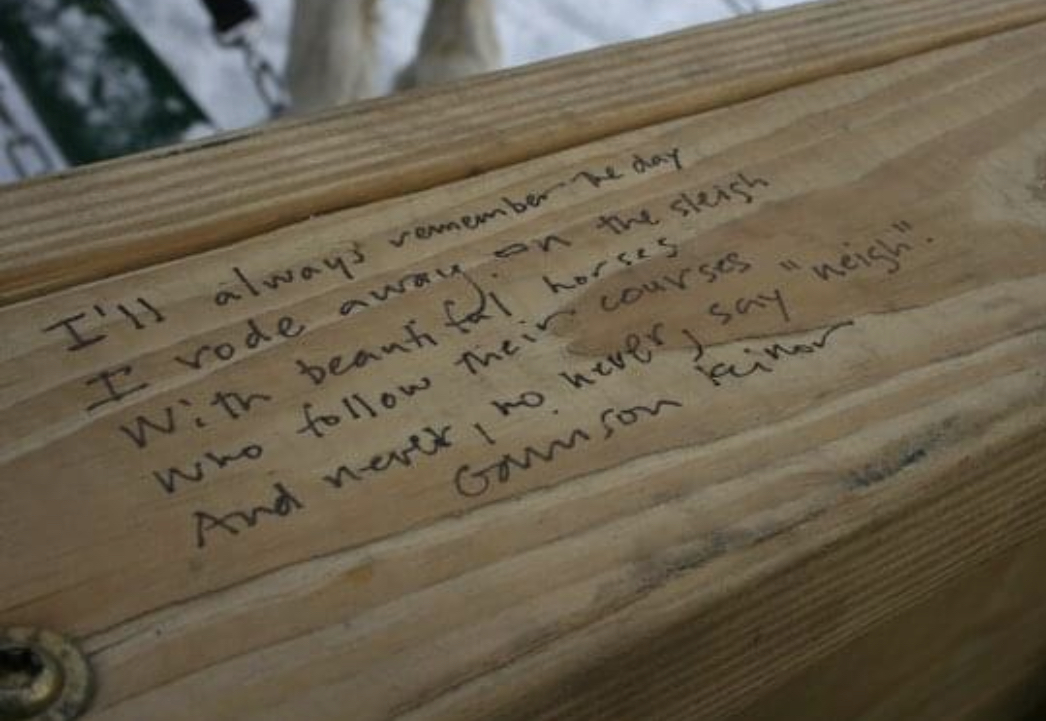 I'll always remember the day
I rode away on the sleigh
With beautiful horses
who follow their courses
And never, no never, say "neigh".
Garrison Keillor